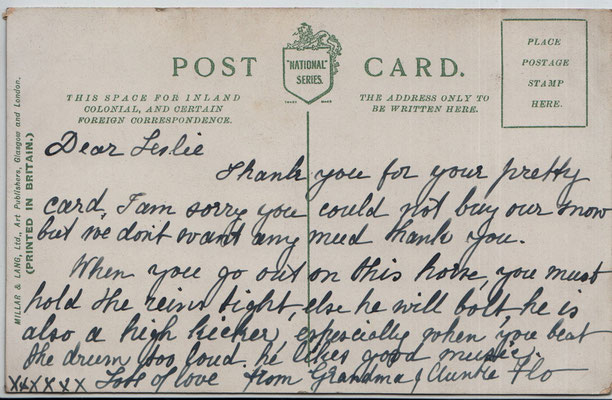 POST CARD.
"NATIONAL"
SERIES.
TRADE MARK
PLACE
POSTAGE
STAMP
HERE.
THIS SPACE FOR INLAND
COLONIAL, AND CERTAIN
FOREIGN CORRESPONDENCE.
THE ADDRESS ONLY TO
BE WRITTEN HERE.
MILLAR & LANG, Ltd., Art Publishers, Glasgow and London.
(PRINTED IN BRITAIN.)
Dear Leslie
Thank you for your pretty
card, I am sorry you could not buy our snow
but we don't want any mud thank you.
When you go out on this horse, you must
hold the reins tight, else he will bolt, he is
also a high kicker, especially when you beat
the drum too loud. he likes good music.
xxxxxx Lots of love from Grandma & Auntie Flo